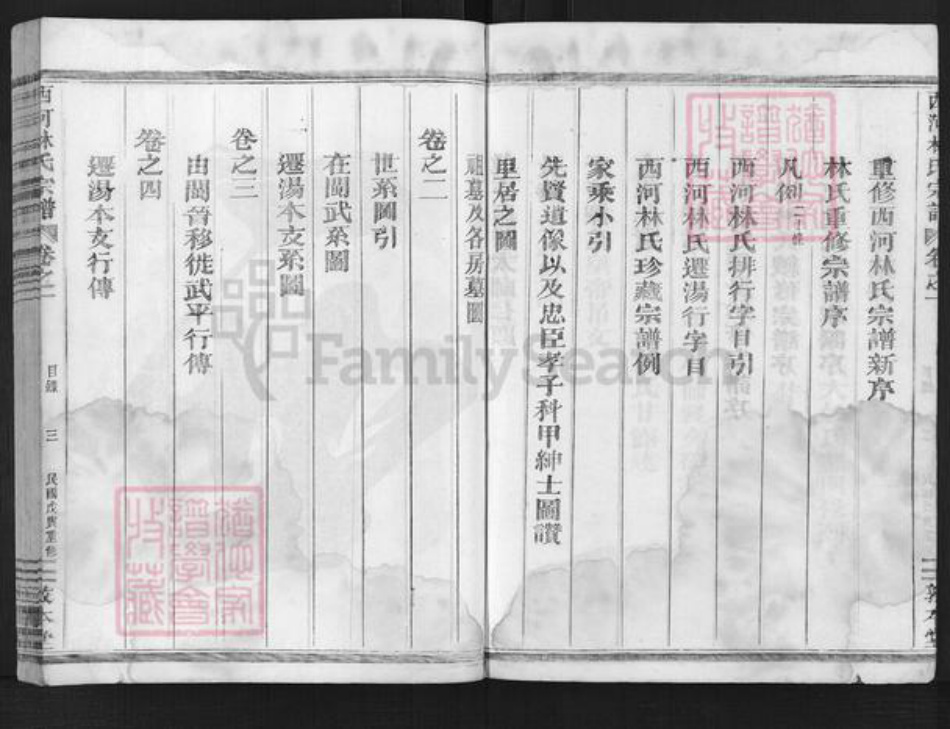 重修西河林氏宗譜新序
林氏重修宗譜序
凡例
西河林氏排行字目引
西河林氏遷湯行字目
西河林氏珍藏宗譜例
家乘小引
先賢遺像以及忠臣孝子科甲紳士圖讚
里居之圖
祖墓及各房墓圖
卷之二
世系圖引
在閩武系圖
遷湯本支系圖
卷之三
由閩晉移徙武平行傳
卷之四
遷湯本支行傳
西河林氏宗譜 卷之一 目錄 三 民國戊 重修 敦本堂
FamilySearch
譜學會
收藏